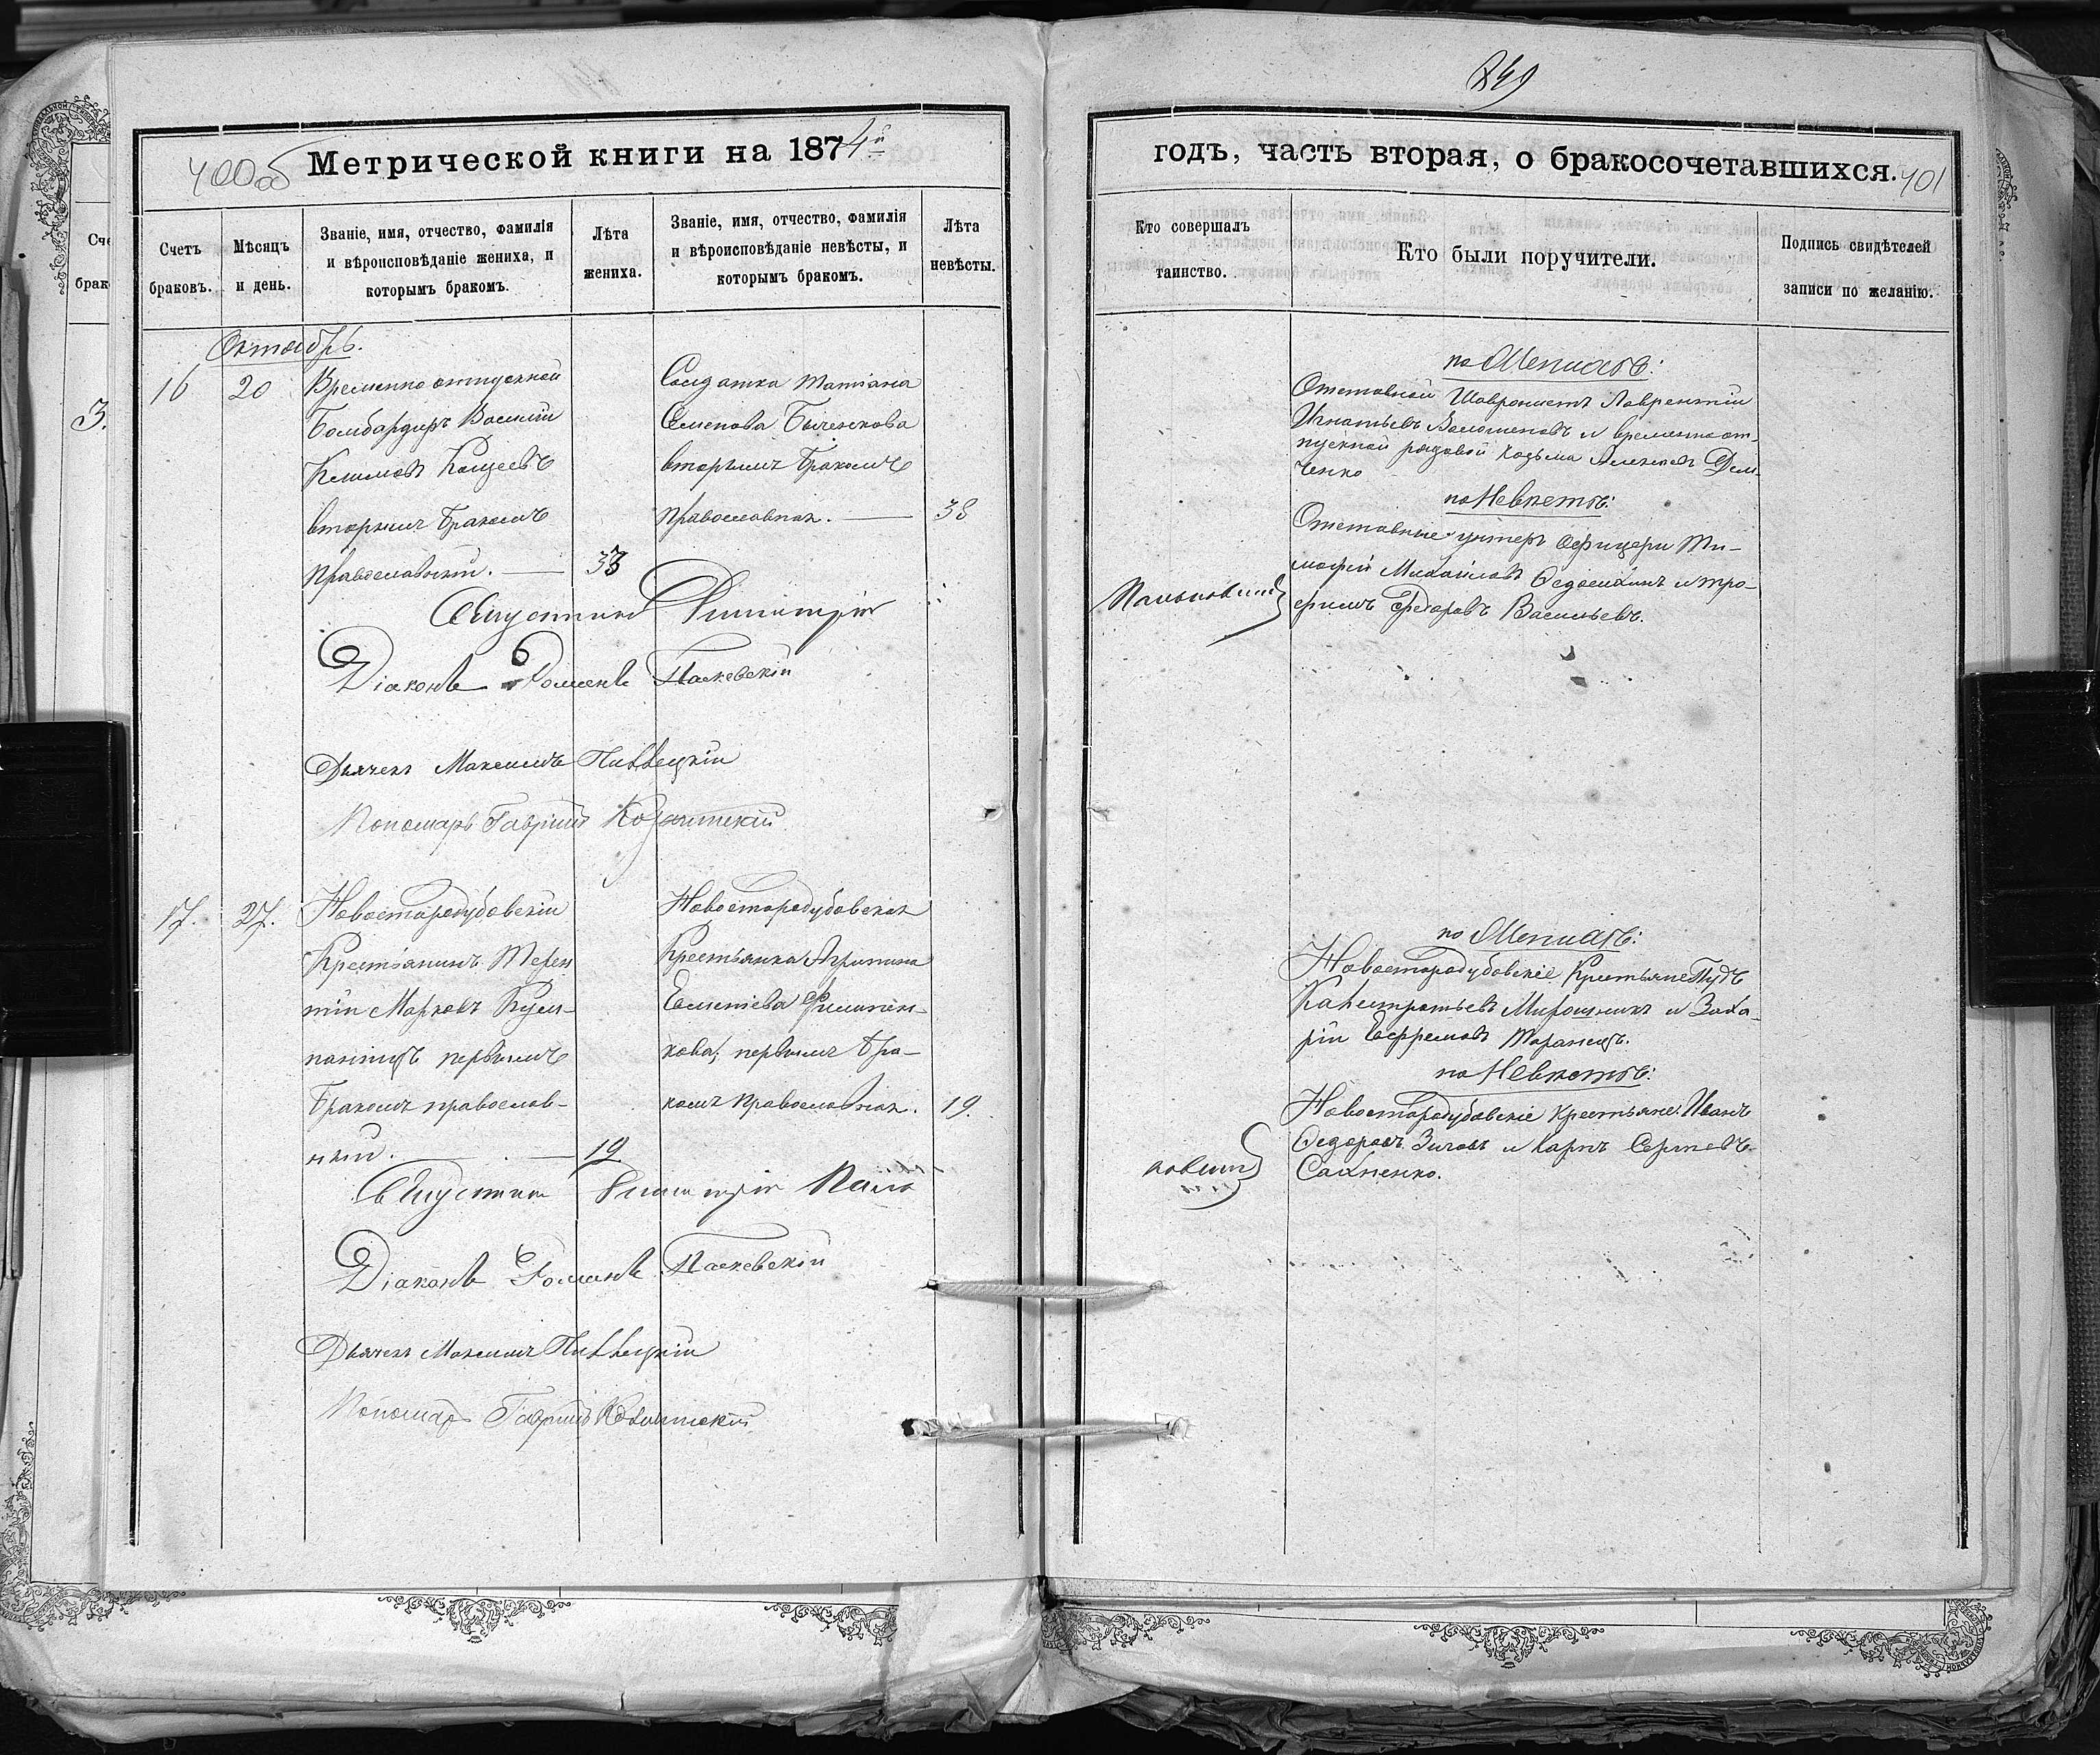 849
400об
Метрической книги на 1874й
годъ, часть вторая, о бракосочетавшихся.
401
Счетъ браковъ.
Мѣсяцъ и день.
Званіе, имя, отчество, фамилія
и вѣроисповѣданіе жениха, и
которымъ бракомъ.
Лѣта жениха.
Званіе, имя, отчество, фамилія
и вѣроисповѣданіе невѣсты, и
которымъ бракомъ.
Лѣта невѣсты.
Кто совершалъ
таинство.
Кто были поручители.
Подпись свидѣтелей
записи по желанію.
Октябрь.
16
20
Временно отпускной
Бомбардиръ Василій
Климовъ Кощеевъ
вторымъ бракомъ
православный. — 33
Солдатка Татіана
Семенова Быченкова
вторымъ бракомъ
православная. — 38
по Женихѣ:
Отставной Лаврентій
Игнатьевъ и временно от-
пускной рядовой Козьма Дем-
ченко
по Невѣстѣ:
Отставные унтеръ офицеры Ти-
мофій Михайловъ и Тро-
фимъ Федоровъ Васильевъ.
Свящ Димитрій
Діаконъ Романъ Паскевскій
Дьячекъ Максимъ
Пономарь Гавріилъ
17.
27.
Новостародубовскій
Крестьянинъ Терен
тій Марковъ Кум-
панецъ первымъ
бракомъ православ-
ный. — 19
Новостародубовская
Крестьянка Агрипина
Филипен-
кова, первымъ бра-
комъ православная. 19.
по Женихѣ:
Новостародубовскіе Крестьяне
Калистратьевъ Мирошникъ и Заха-
рій Ефремовъ Таранецъ.
по Невѣстѣ:
Новостародубовскіе Крестьяне: Иванъ
Федоровъ и Карпъ Сергѣевъ
Сахненко.
Димитрій
Діаконъ Романъ Паскевскій
Дьячекъ Максимъ
Пономарь Гавріилъ
Сче
брак
3.